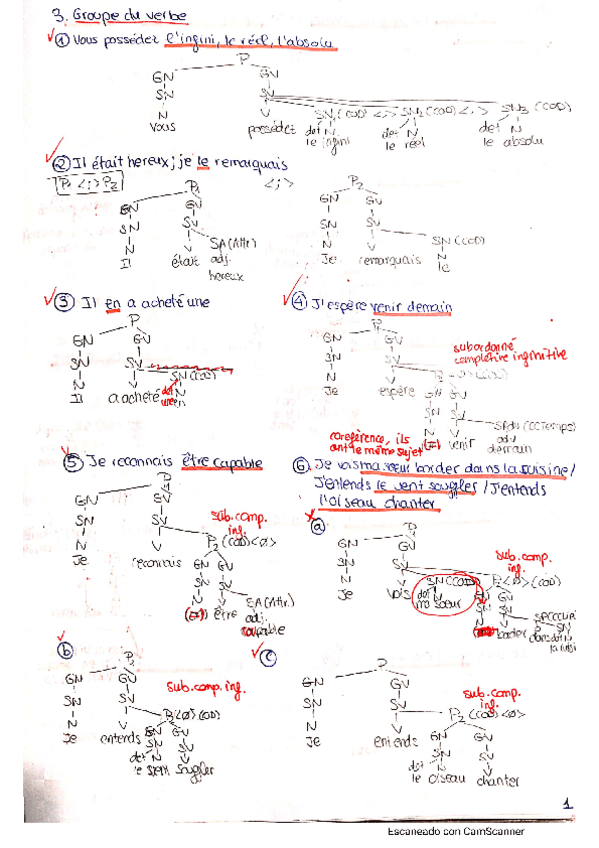 3. Groupe du verbe
① Vous possédez l'infini, le réel, l'absolu
P
GN GV
SN SV
N V SN1 (COD) <,> SN2 (COD) <,> SN3 (COD)
Vous possédez det N det N det N
le infini le réel le absolu
② Il était hereux; je le remarquais
P1 <;> P2
P1 <;> P2
GN GV GN GV
SN SV SN SV
N V SA (Attr.) N V SN (COD)
Il était adj. Je remarquais N
hereux le
③ Il en a acheté une ④ J'espère venir demain
P P1
GN GV GN GV
SN SV SN SV
N V SN (COD) N V P2
Il a acheté det N Je espère
une en
subordonné
complétive infinitive
GN GV
SN SV
N V SAdv (CCTemps)
(=) venir adv
demain
coreférence, ils
ont le même sujet
⑤ Je reconnais être capable
P
GN GV
SN SV
N V P2 (COD) <Ø>
Je reconnais GN GV
sub. comp.
inf.
SN SV
N V SA (Attr.)
(=) être adj.
capable
⑥ Je vois ma sœur border dans la cuisine /
J'entends le vent souffler / J'entends
l'oiseau chanter
ⓐ P
GN GV
SN SV
N V SN (COD) P2 <Ø> (COD)
Je vois det N
ma sœur
sub. comp.
inf.
GN GV
SN SV
N V
border
ⓑ P2
GN GV
SN SV
N V P2 <Ø> (COD)
Je entends GN GV
sub. comp. inf.
SN SV
det N V
le souffler
ⓒ P
GN GV
SN SV
N V P2 (COD) <Ø>
Je entends GN GV
sub. comp.
inf.
SN SV
det N V
le oiseau chanter
1
Escaneado con CamScanner